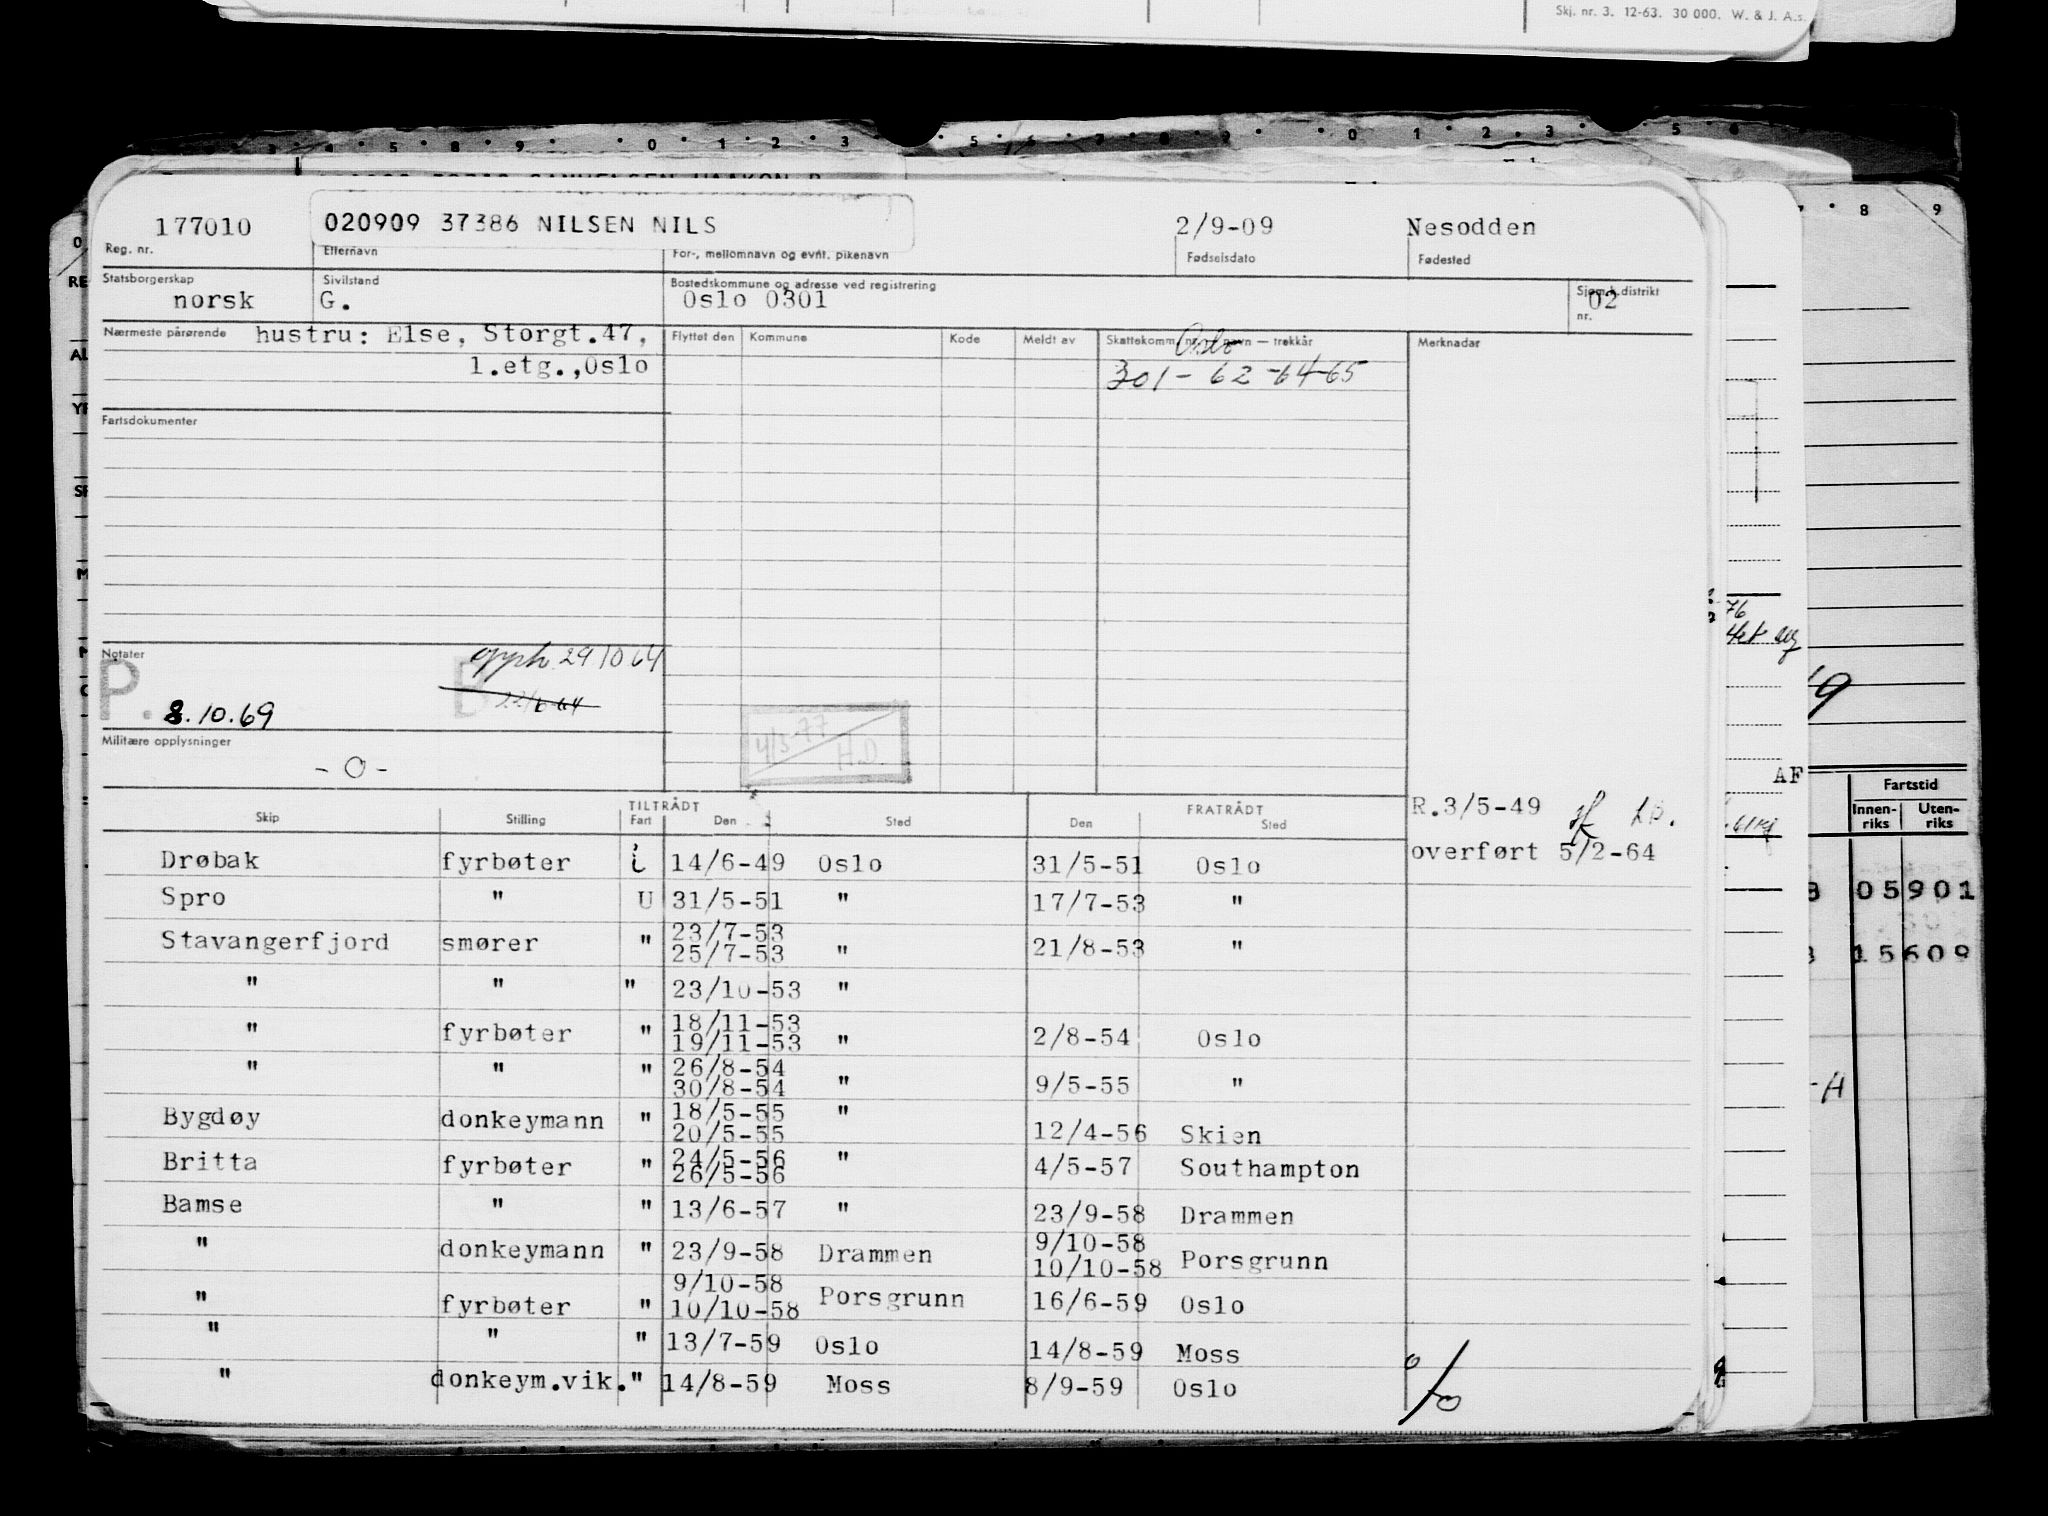 Skj. nr. 3. 12-63. 30 000. W. & J. A.s.
177010 020909 37386 NILSEN NILS 2/9-09 Nesodden
Reg. nr. Etternavn For-, mellomnavn og evnt. pikenavn Fødselsdato Fødested
Statsborgerskap Sivilstand Bostedskommune og adresse ved registrering Sjøm.k.distrikt
norsk G. Oslo 0301 nr. 02
Nærmeste pårørende hustru: Else, Storgt.47, Flyttet den Kommune Kode Meldt av Skattekomm. nr. navn — trekkår Merknader
Oslo
1.etg.,Oslo 301 - 62 -64-65
Fartsdokumenter
Notater opph 29/10 64
P. 8.10.69 B 22/6 64
4/3-77
H.D.
Militære opplysninger
- O -
TILTRÅDT FRATRÅDT R.3/5-49
Skip Stilling Fart Den Sted Den Sted
overført 5/2-64
Drøbak fyrbøter i 14/6-49 Oslo 31/5-51 Oslo
Spro " U 31/5-51 " 17/7-53 "
Stavangerfjord smører " 23/7-53
25/7-53 " 21/8-53 "
" " " 23/10-53 "
" fyrbøter " 18/11-53
19/11-53 " 2/8-54 Oslo
" " " 26/8-54
30/8-54 " 9/5-55 "
Bygdøy donkeymann " 18/5-55 "
20/5-55 12/4-56 Skien
Britta fyrbøter " 24/5-56 "
26/5-56 4/5-57 Southampton
Bamse " " 13/6-57 " 23/9-58 Drammen
" donkeymann " 23/9-58 Drammen 9/10-58
10/10-58 Porsgrunn
" fyrbøter " 9/10-58
10/10-58 Porsgrunn 16/6-59 Oslo
" " " 13/7-59 Oslo 14/8-59 Moss
" donkeym.vik. " 14/8-59 Moss 8/9-59 Oslo
Fartstid
Innen-riks Uten-riks
05901
15609
AF